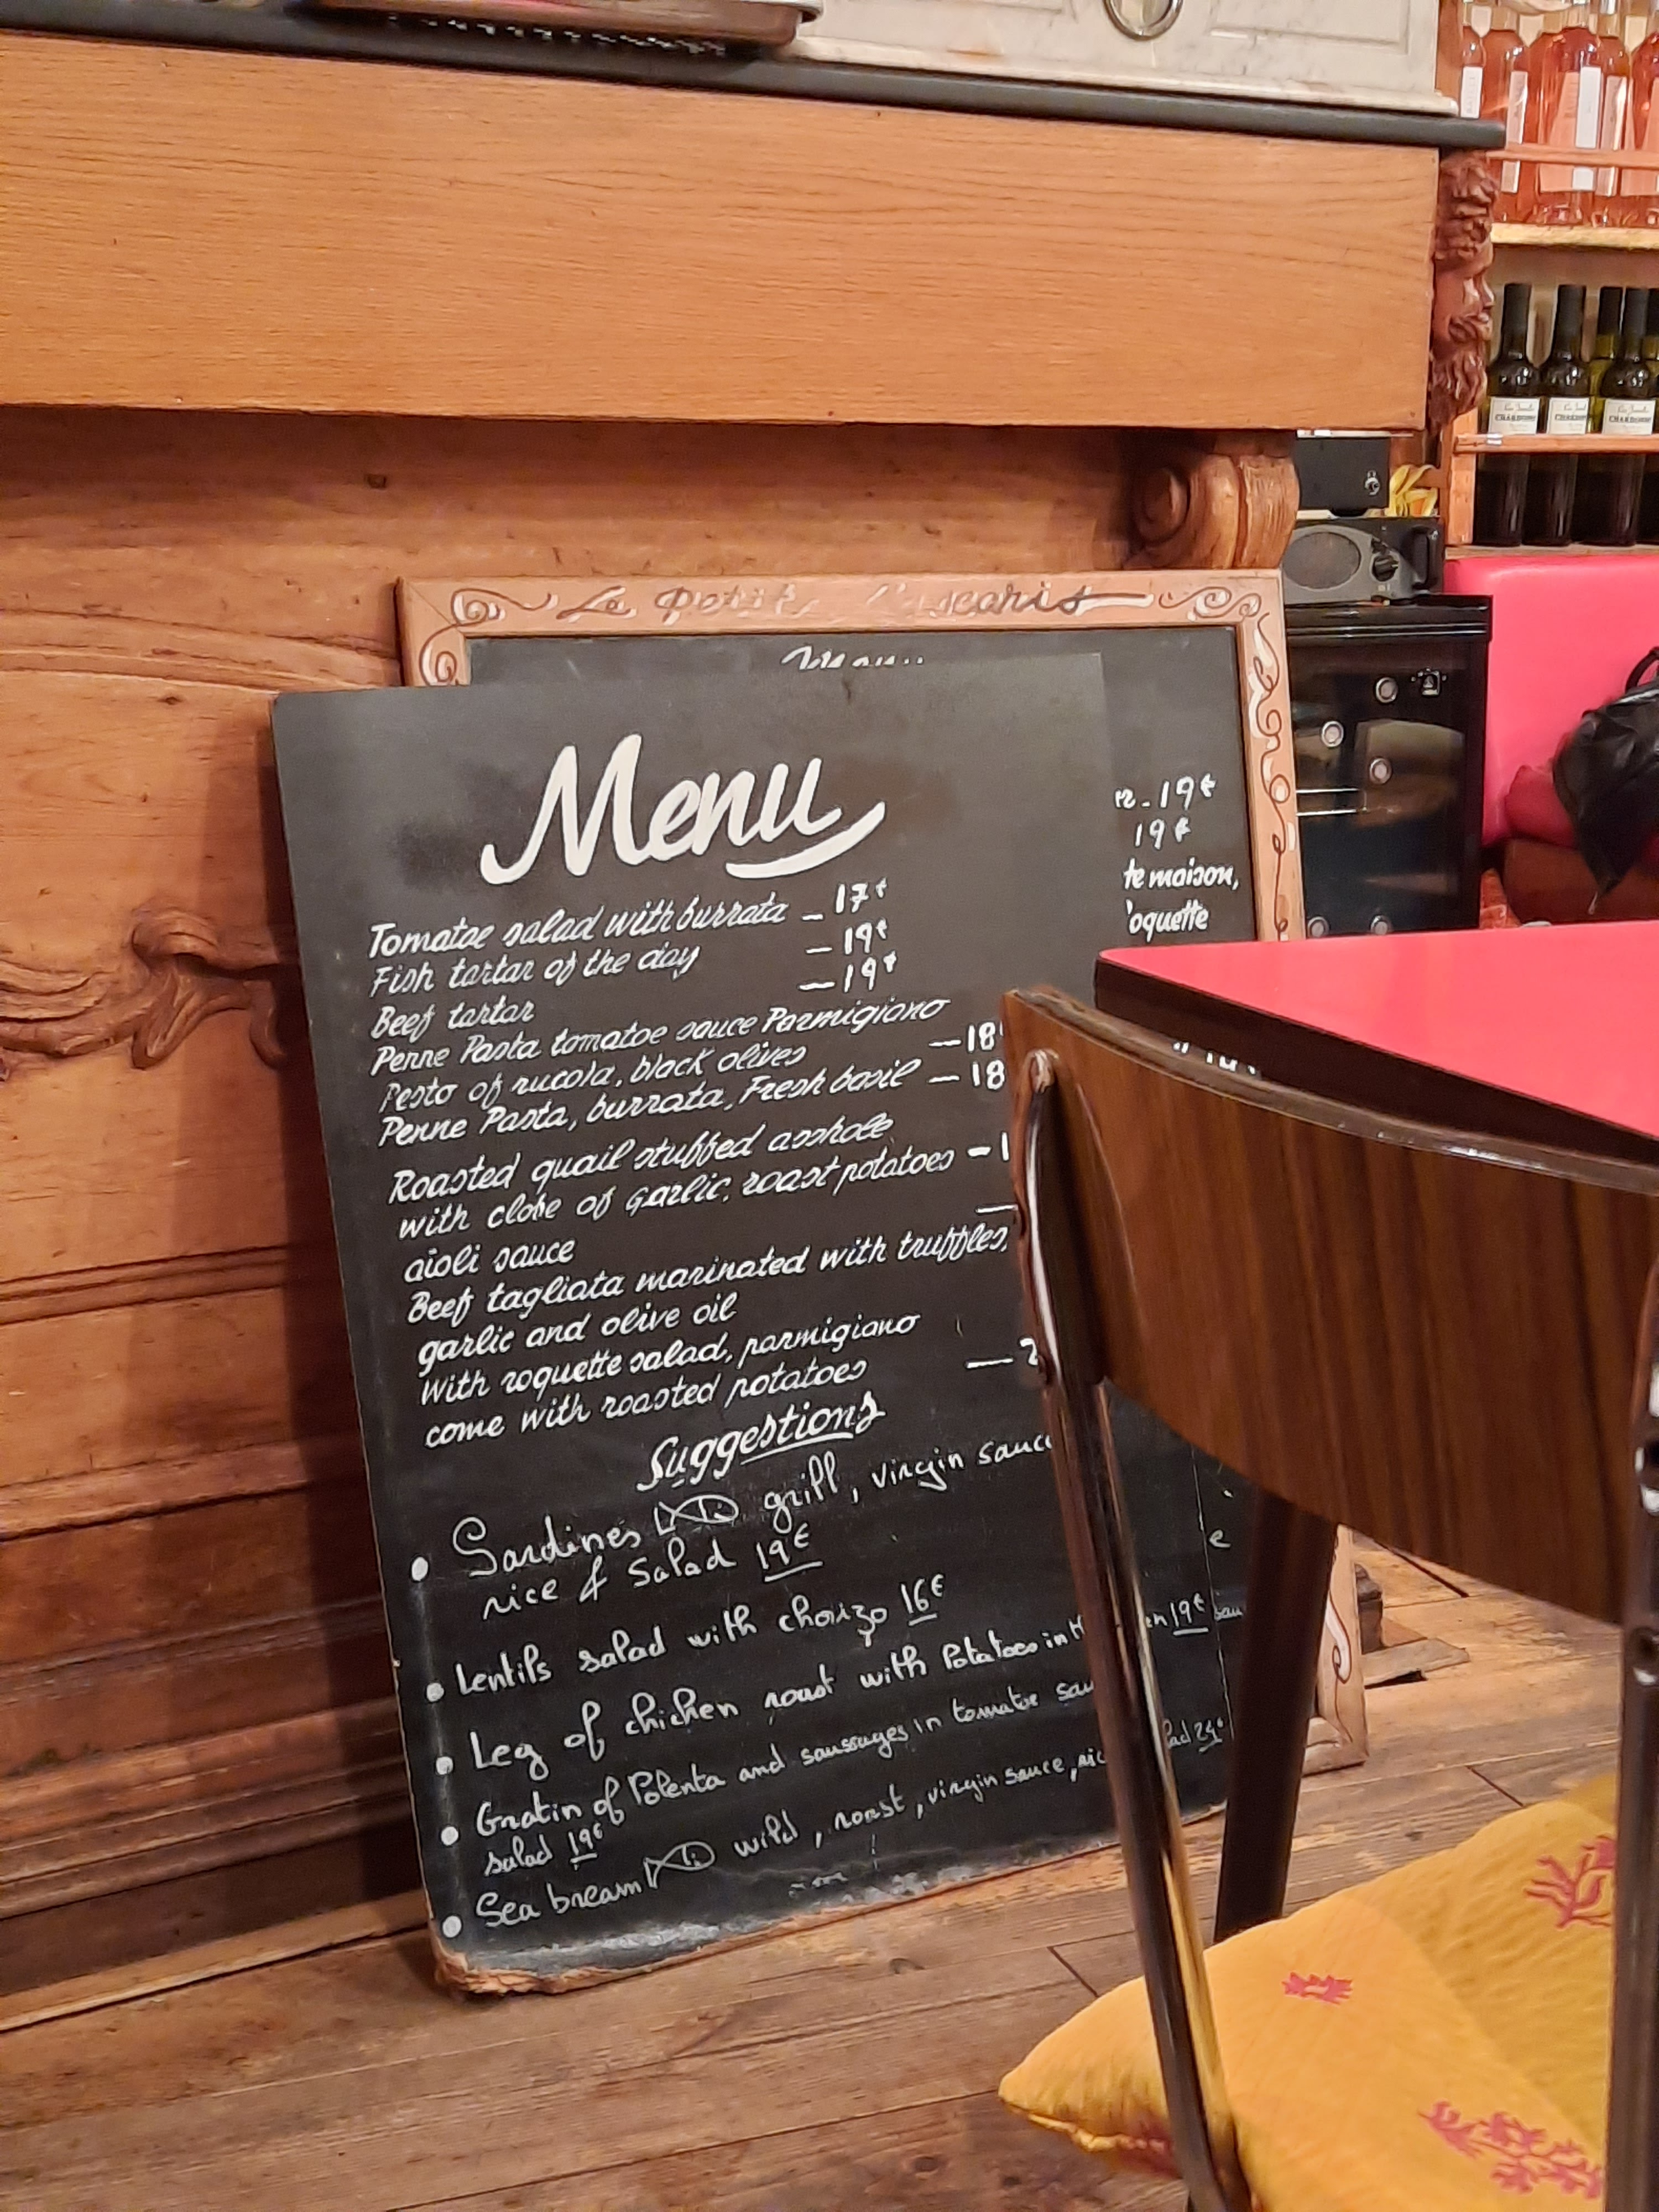 Menu
12.19€
19€
te maison,
oquette
Menu
Tomatoe salad with burrata - 17€
Fish tartar of the day - 19€
Beef tartar - 19€
Penne Pasta tomatoe sauce Parmigiano
Pesto of rucola, black olives - 18
Penne Pasta, burrata, Fresh basil - 18
Roasted quail stuffed asshole
with clobe of garlic, roast potatoes - 1
aioli sauce
Beef tagliata marinated with truffles,
garlic and olive oil
With roquette salad, parmigiano
come with roasted potatoes - 2
Suggestions
• Sardines grill, virgin sauc
rice & Salad 19€
• Lentils salad with chorizo 16€
• Leg of chicken roast with Potatoes in 19€
• Gratin of Polenta and saussages in tomatoe sau
salad 19€
• Sea bream wild, roast, virgin sauce, ric lad 24€